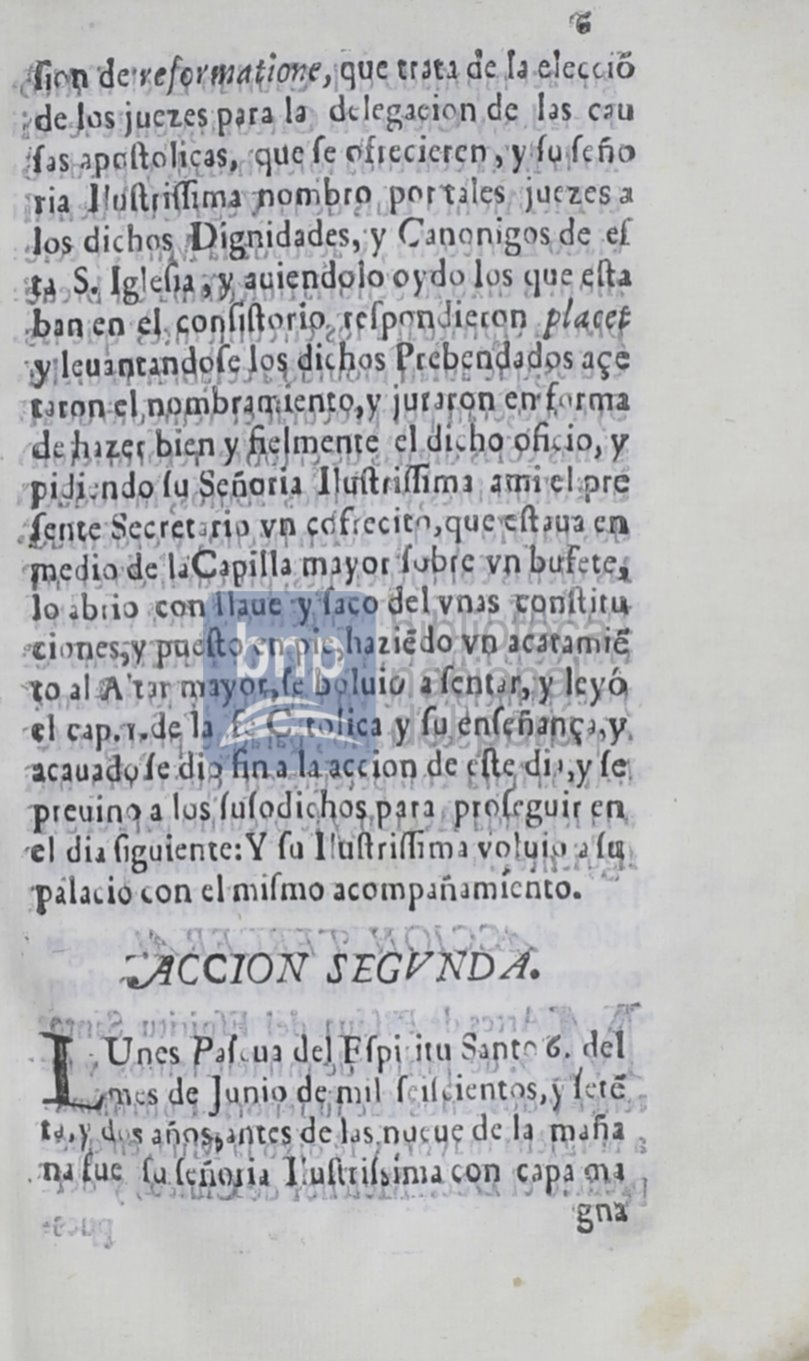 6
sion de reformatione, que trata de la elecciõ
de los juezes para la delegacion de las cau
sas apostolicas, que se ofrecieren, y su seño
ria Illustrissima nombro por tales juezes a
los dichos Dignidades, y Canonigos de es
ta S. Iglesia, y auiendolo oydo los que esta
ban en el consistorio, respondieron placet
y leuantandose los dichos Prebendados açe
taron el nombramiento, y juraron en forma
de hazer bien y fielmente el dicho oficio, y
pidiendo su Señoria Ilustrissima ami el pre
sente Secretario vn cofrecito, que estaua en
medio de la Capilla mayor sobre vn bufete,
lo abrio con llaue y saco del vnas constitu
ciones, y puesto en pie, haziẽdo vn acatamiẽ
to al Altar mayor, se boluio a sentar, y leyó
el cap. 1. de la fe Catolica y su enseñança, y
acauado se dio fin a la accion de este dia, y se
preuino a los susodichos para proseguir en
el dia siguiente: Y su Illustrissima voluio a su
palacio con el mismo acompañamiento.
ACCION SEGVNDA.
LUnes Pascua del Espiritu Santo 6. del
mes de Junio de mil seiscientos, y setẽ
ta, y dos años, antes de las nueue de la maña
na fue su señoria Illustrissima con capa ma
gna
bnp biblioteca
nacional